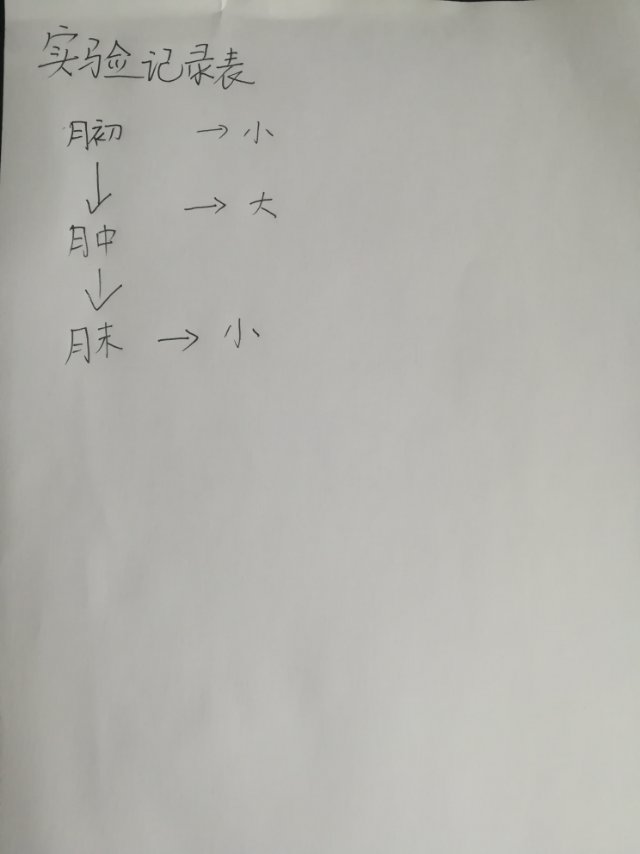 实验记录表
月初 → 小
↓
→ 大
月中
↓
月末 → 小